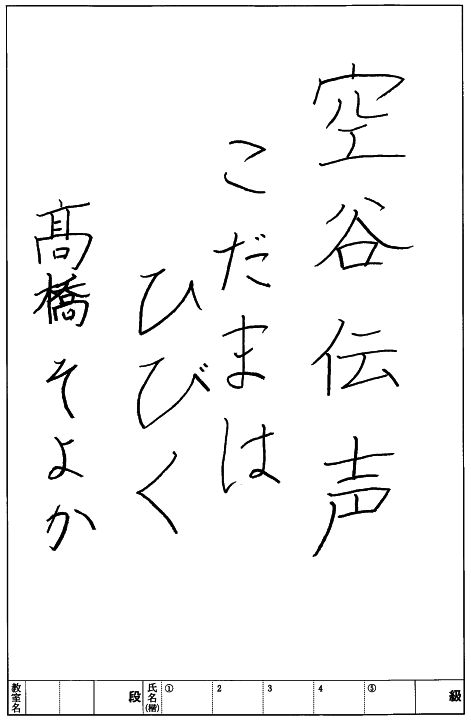 空谷伝声
こだまは
ひびく
髙橋そよか
教室名
段
氏名(楷)
① 2 3 4 ⑤
級